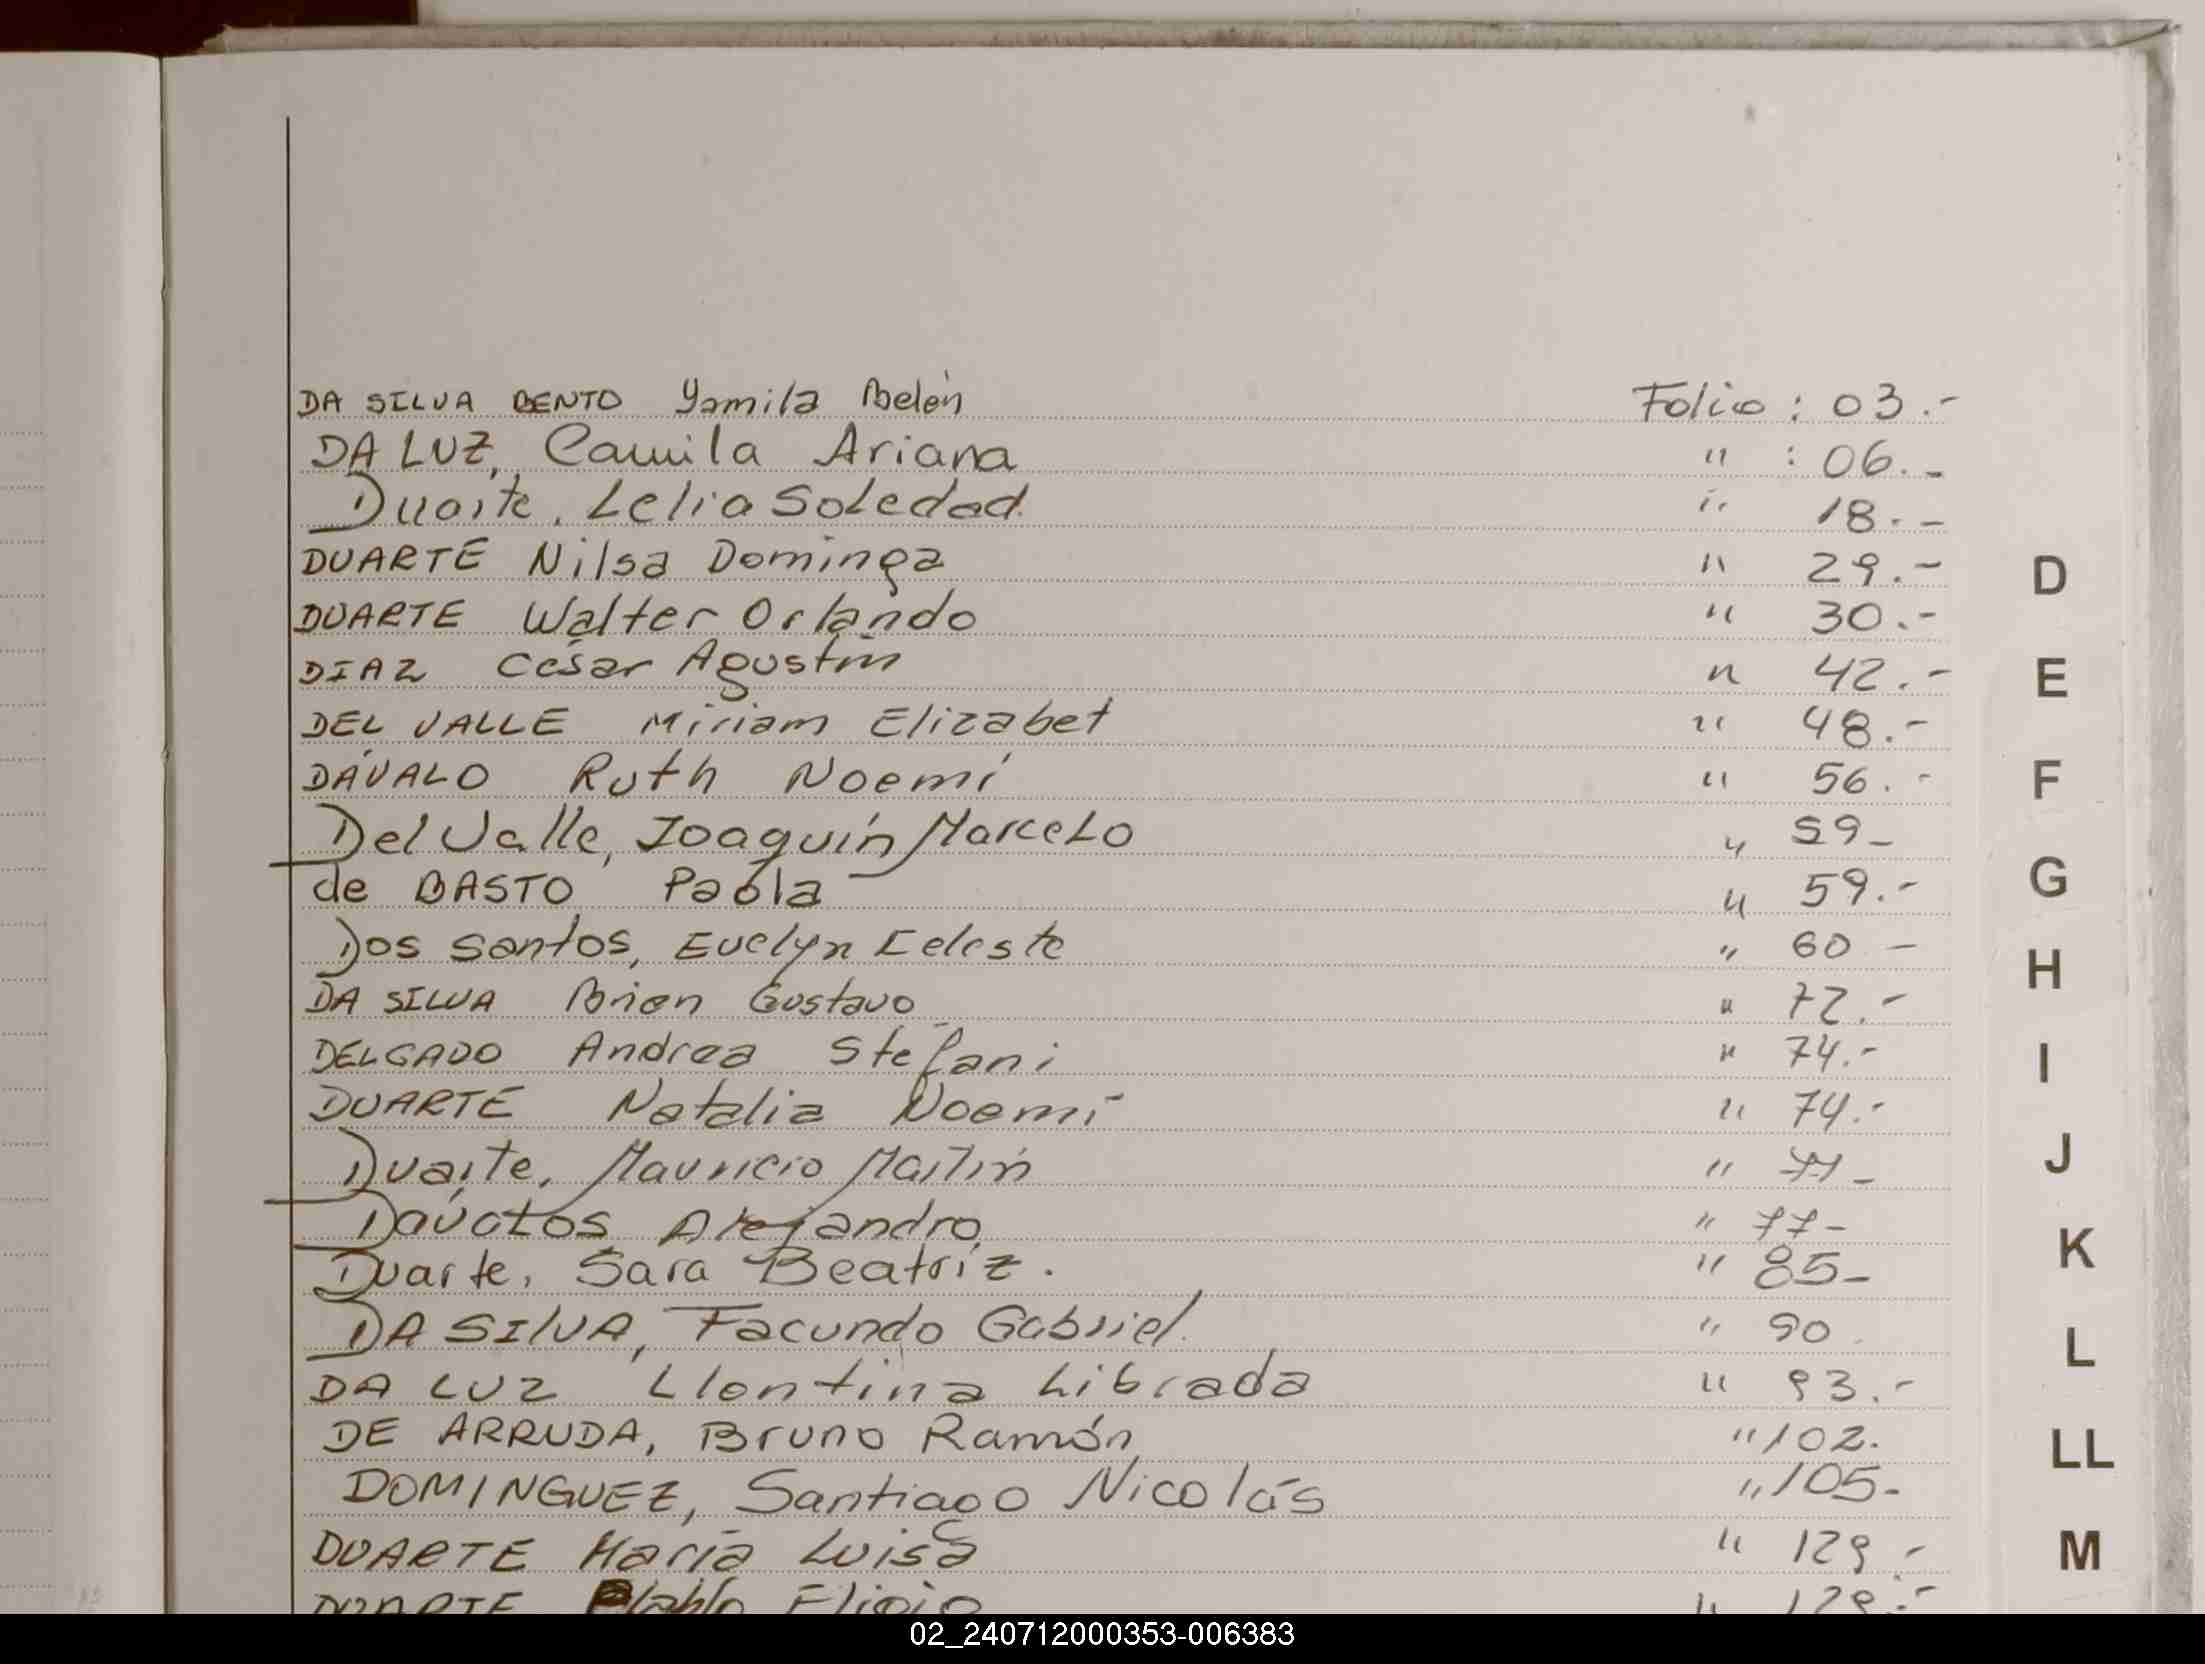 DA SILVA BENTO Yamila Belén Folio : 03.-
DA LUZ, Camila Ariana " : 06.-
Duarte, Lelia Soledad. " 18.-
DUARTE Nilsa Dominga " 29.-
DUARTE Walter Orlando " 30.-
DIAZ César Agustín " 42.-
DEL VALLE Miriam Elizabet " 48.-
DÁVALO Ruth Noemí " 56.-
Del Valle, Joaquín Marcelo " 59-
de BASTO Paola " 59.-
Dos Santos, Evelyn Celeste " 60 -
DA SILVA Brian Gustavo " 72.-
DELGADO Andrea Stefani " 74.-
DUARTE Natalia Noemí " 74.-
Duarte, Mauricio Martín " 77-
Alejandro " 77-
Duarte, Sara Beatriz. " 85-
DA SILVA, Facundo Gabriel. " 90.
DA LUZ Librada " 93.-
DE ARRUDA, Bruno Ramón " 102.
DOMINGUEZ, Santiago Nicolás " 105-
DUARTE María Luisa " 129.-
DUARTE Pablo Eligio " 129.-
D
E
F
G
H
I
J
K
L
LL
M
02_240712000353-006383